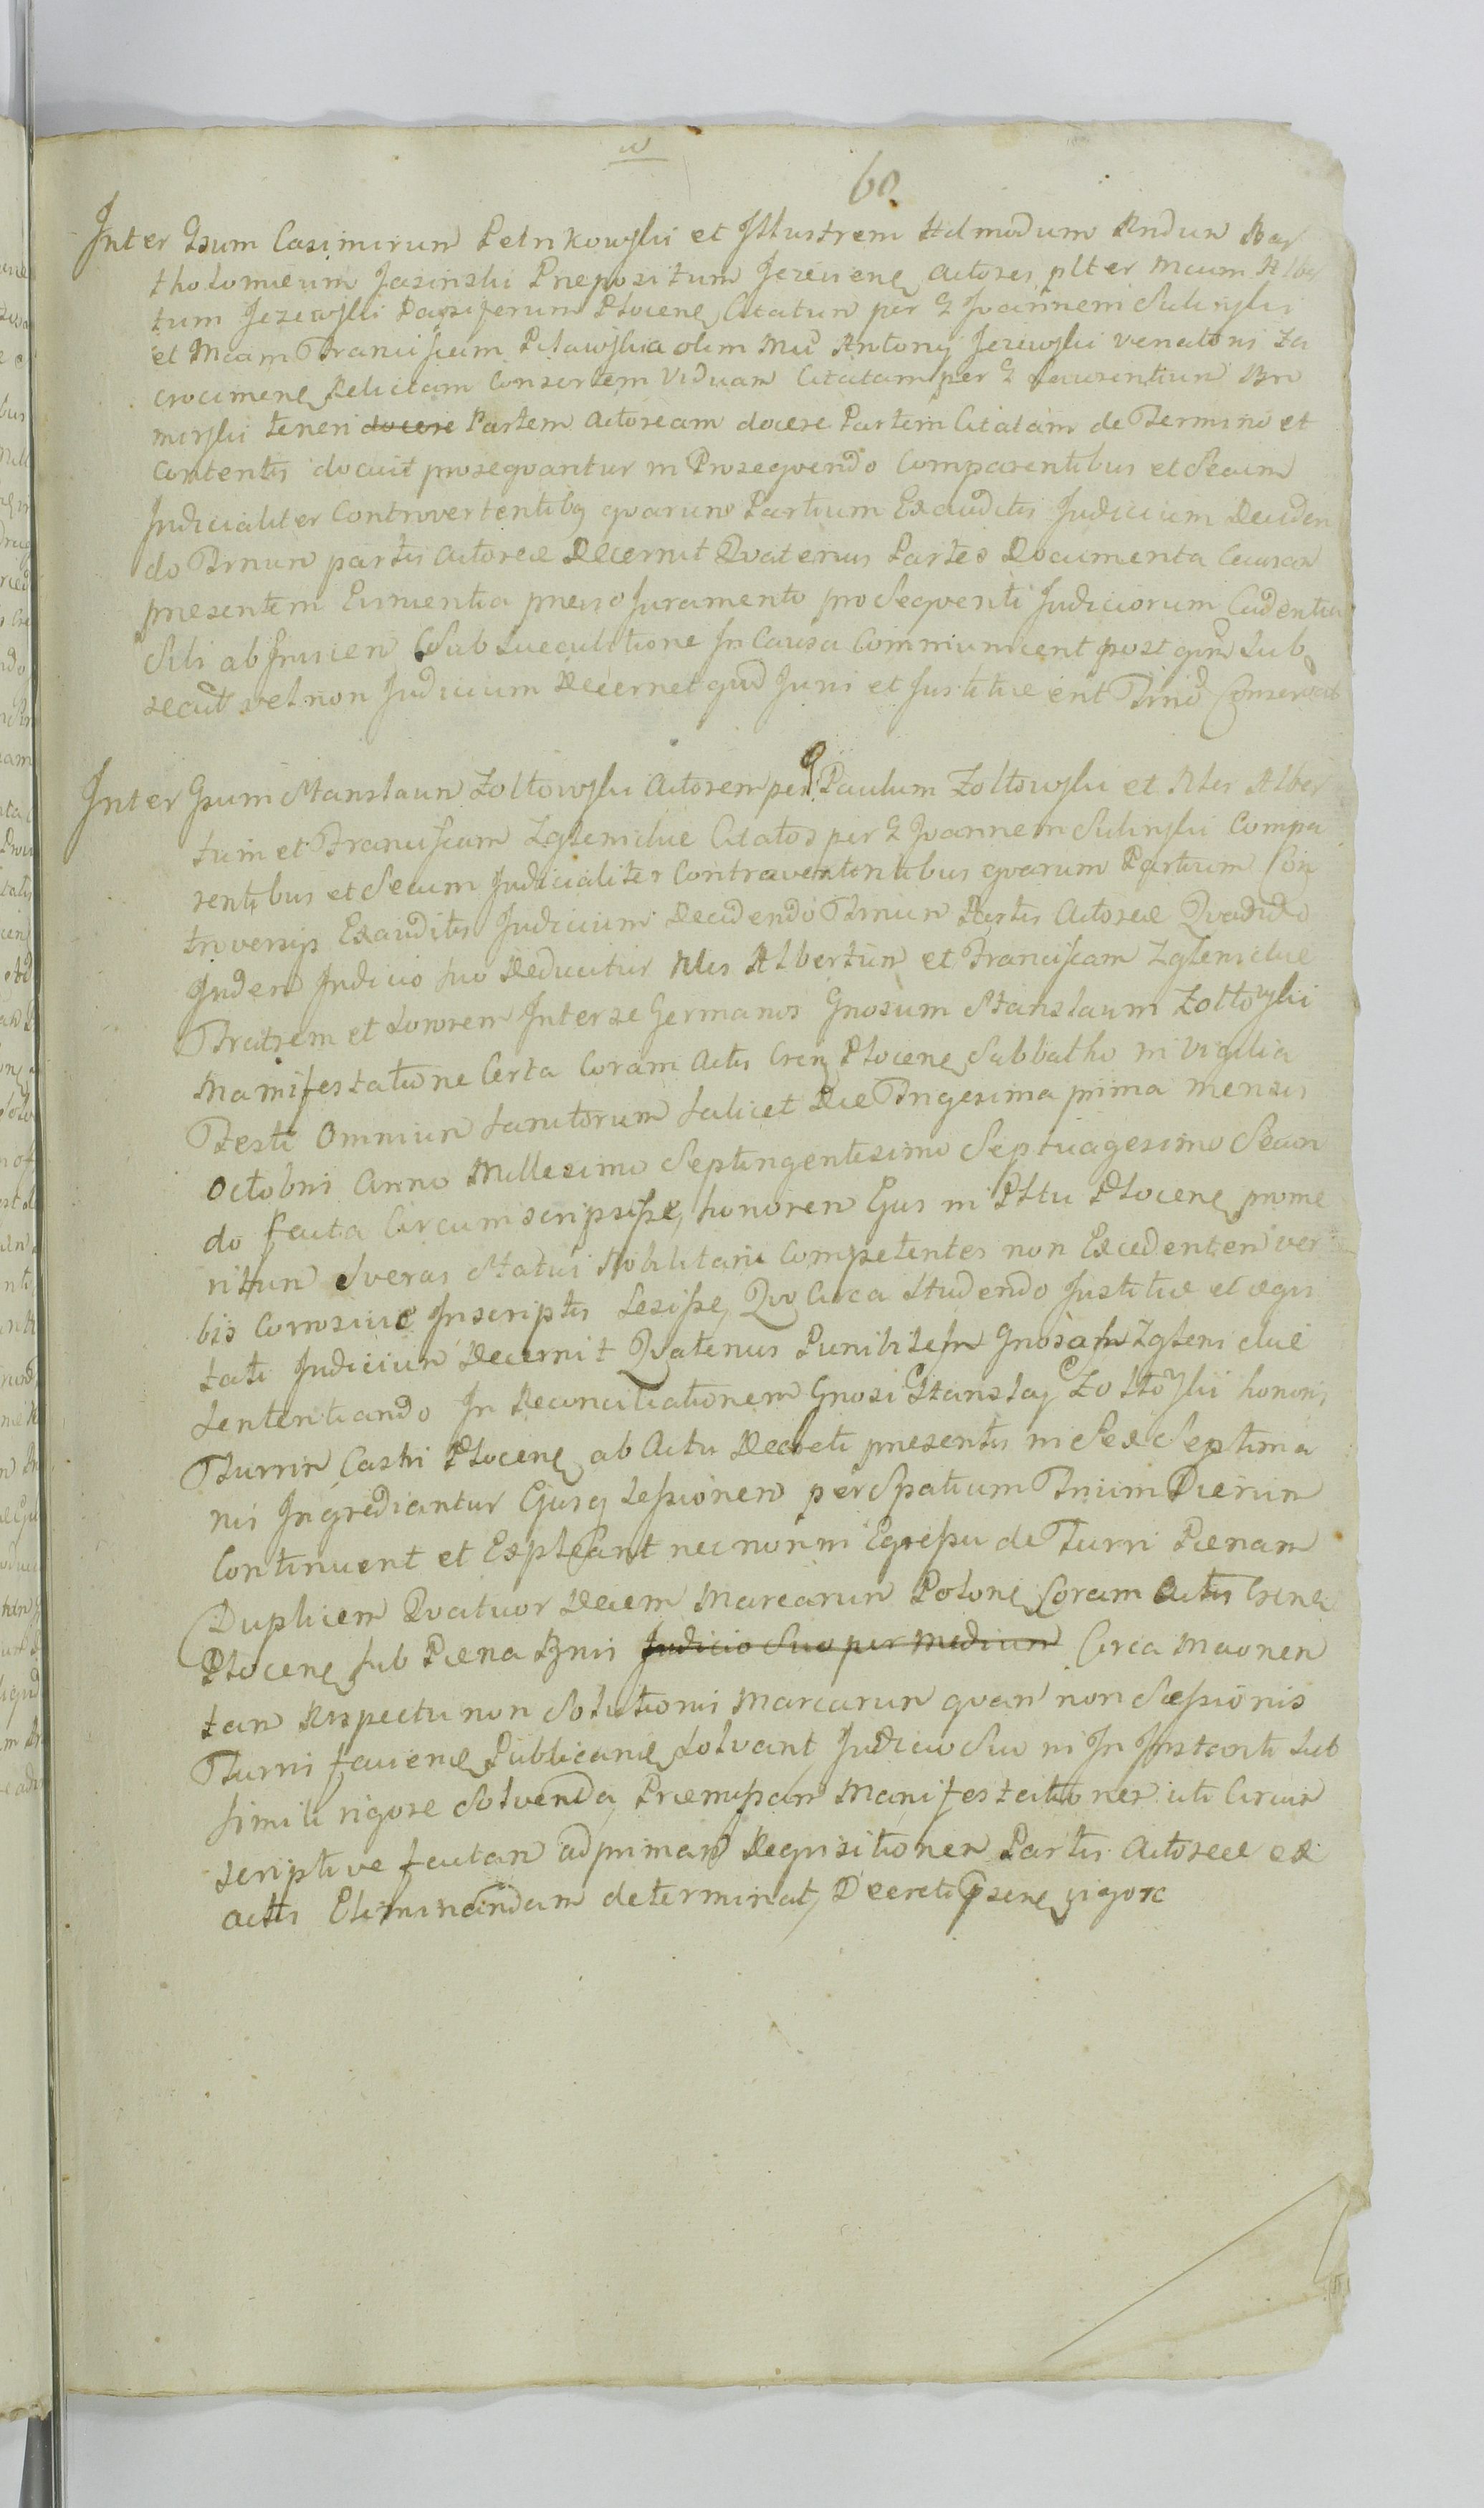 60
Inter Gsum Casimirum Petrikowski et Illustrem Admodum Rndum Bar
tholomeum Jasinski Prepositum Jezeviene Actores plter Mcum Alber
tum Jezewski Dapiferum Plocene Citatum per G Joannem Sulinski
et Mcam Franciscam Pilawska olim Mci Antonij Jezewski Venatoris Za
crocimene Relictam Consortem Viduam Citatam per G Laurentium
mirski teneri docere Partem Actoream docere Partem Citatam de Termino et
Contentis docuit prosequantur in Prosequendo Comparentibus et Secum
Judicialiter Controvertentibq quarum Partium Exauditis Judicium Deciden
do Trnum partis Actoreæ Decernit Quatenus Partes Documenta Causam
presentem Eruentia previo Juramento pro Sequenti Judiciorum Cadentia
Sibi ab Invicem Sub Succubitione In Causa Communicent post qum Sub
secut vel non Judicium Decernet qud Juris et Justitiæ erit Trno Conservato
Inter Gsum Stanslaum Zoltowski Actorem per G Paulum Zoltowski et Nles Alber
tum et Franciscam Zglenickie Citatos per G Joannem Sulinski Compa
rentibus et Secum Judicialiter Contravententibus quarum Partium Con
troversijs Exauditis Judicium Decidendo Trnum Partis Actoreæ Quandodo
quidem Judicio suo Deducitur Nles Albertum et Franciscam Zglenickie
Fratrem et Sororem Inter se Germanos Gnosum Stanslaum Zoltowski
Manifestatione Certa Coram Actis Cren Plocene Sabbatho in Vigilia
Festi Omnium Sanctorum Salicet Die Trigesima prima mensis
Octobris Anno Millesimo Septingentesimo Septuagesimo Secun
do facta Circumscripsisse, honorem Ejus in Plttu Plocene prome
ritum Sveras Status Nobilitaris Competentes non Excedentem ver
bis Corrosive Inscriptis Lesisse, Quo Circa Studendo Justitiæ et æqui
tati Judicium Decernit Quatenus Punibilem Gnosam Zglenickie
Sententiando In Reconciliationem Gnosi Stanslaj Zoltowski honoris
Turrim Castri Plocene ab Actu Decreti presentis in Sex Septima
nis Ingrediantur Ejusq Sessionem per Spatium Trium Dierum
Continuent et Expleant nec non in Egressu de Turri Pænam
Duplicem Quatuor Decem Marcarum Polone Coram Actis Crene
Plocene Sub Pæna Bnis Judicio Suo per Medium Circa Maonen
tam Respectu non Solutionis Marcarum quam non Sessionis
Turris faciene Publicane Solvant Judicio Suo in Instanti Sub
simili rigore Solvenda, Præmissam Manifestationem uti Circum
scriptive factam ad primam Requisitionem Partis Actoreæ ex
Actis Eliminandam determinat, Decreti psene vigore